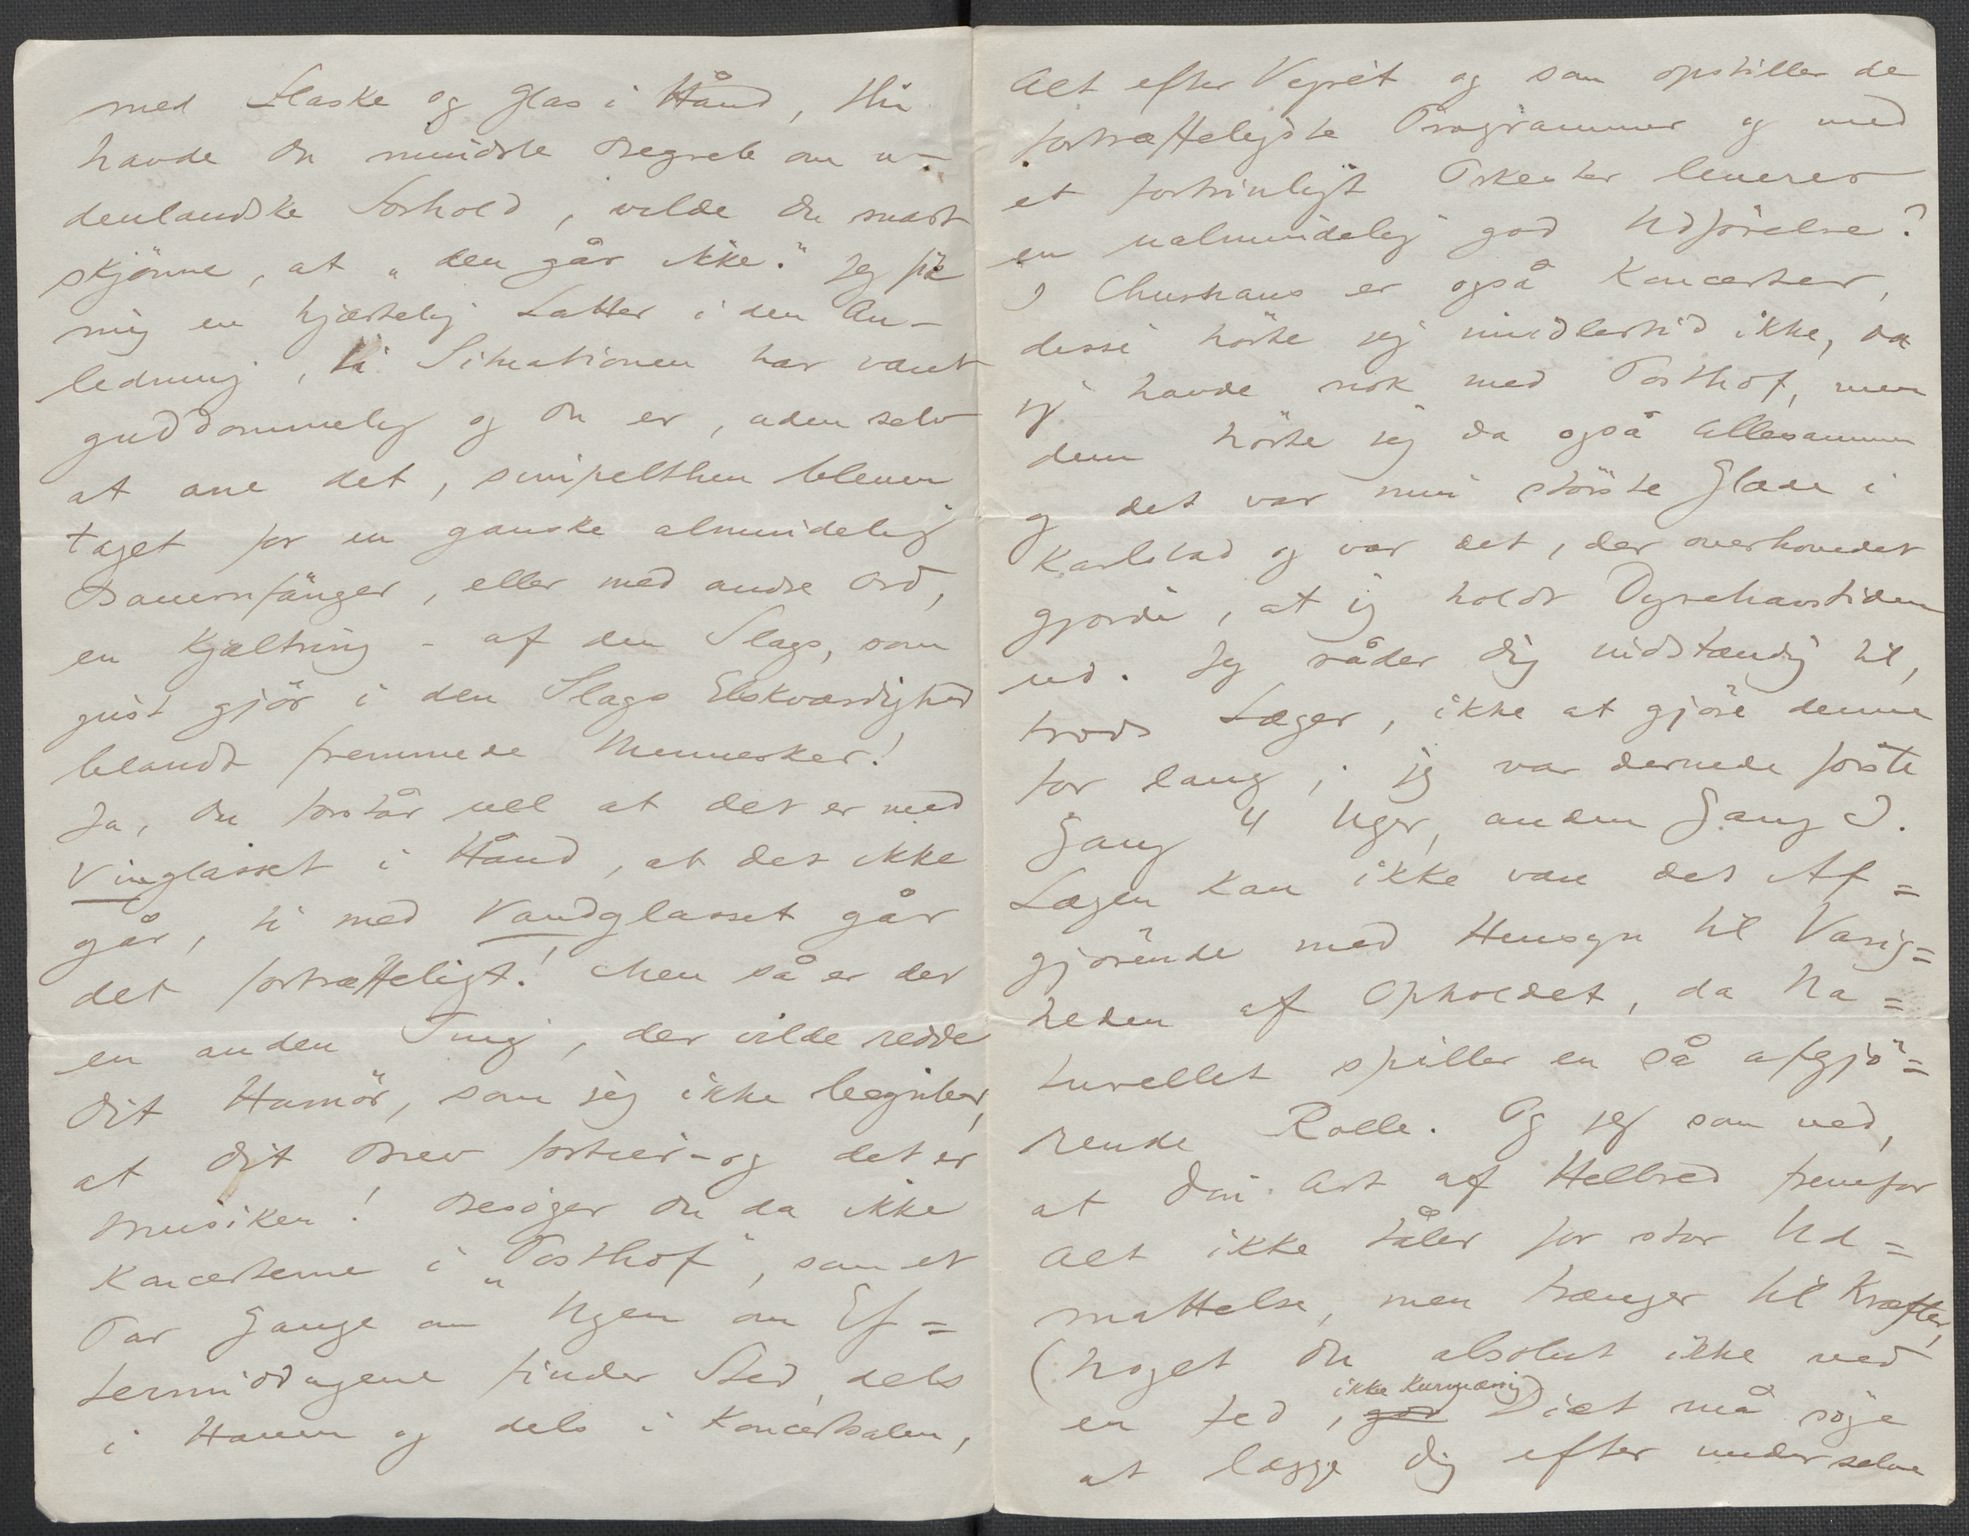 med Flaske og Glas i Hånd, thi
havde Du mindste Begreb om u-
denlandske Forhold, vilde Du snart
skjönne, at "den går ikke." Jeg fik
mig en hjærtelig Latter i den An-
ledning, ti Situationen har været
guddommelig og Du er, uden selv
at ane det, simpelthen bleven
taget for en ganske almindelig
Bauernfänger, eller med andre Ord,
en Kjæltring - af den Slags, som
just gjör i den Slags Elskværdighed
blandt fremmede Mennesker!
Ja, Du forstår vel at det er med
Vinglasset i Hånd, at det ikke
går, ti med Vandglasset går
det fortræffeligt! Men så er der
en anden Ting, der vilde redde
Dit Humör, som jeg ikke begriber,
at Dit Brev fortier - og det er
Musiken! Besöger Du da ikke
Koncerterne i "Posthof", som et
Par Gange om Ugen om Ef=
termiddagene finder Sted, dels
i Haven og dels i Koncertsalen,
Alt efter Vejret og som opstiller de
fortræffeligste Programmer og med
et fortrinligt Orkester leverer
en ualmindelig god Udförelse?
I Churhaus er også Koncerter,
disse hörte jeg imidlertid ikke, da
jeg havde nok med Posthof, men
dem hörte jeg da også Allesammen
og det var min störste Glæde i
Karlsbad og var det, der overhovedet
gjorde, at jeg holdt Dyrehavstiden
ud. Jeg råder Dig indstændig til,
trods Læger, ikke at gjöre denne
for lang; jeg var dernede förste
Gang 4 Uger, anden Gang 3.
Lægen kan ikke være det Af=
gjörende med Hensyn til Varig=
heden af Opholdet, da Na=
turellet spiller en så afgjö=
rende Rolle. Og jeg som ved,
at Din Art af Helbred fremfor
Alt ikke tåler for stor Ud=
mattelse, men trænger til Kræfter,
(noget Du absolut ikke ved
ikke Kurmæssig)
en fed, Diæt må söge
at lægge Dig efter under selve